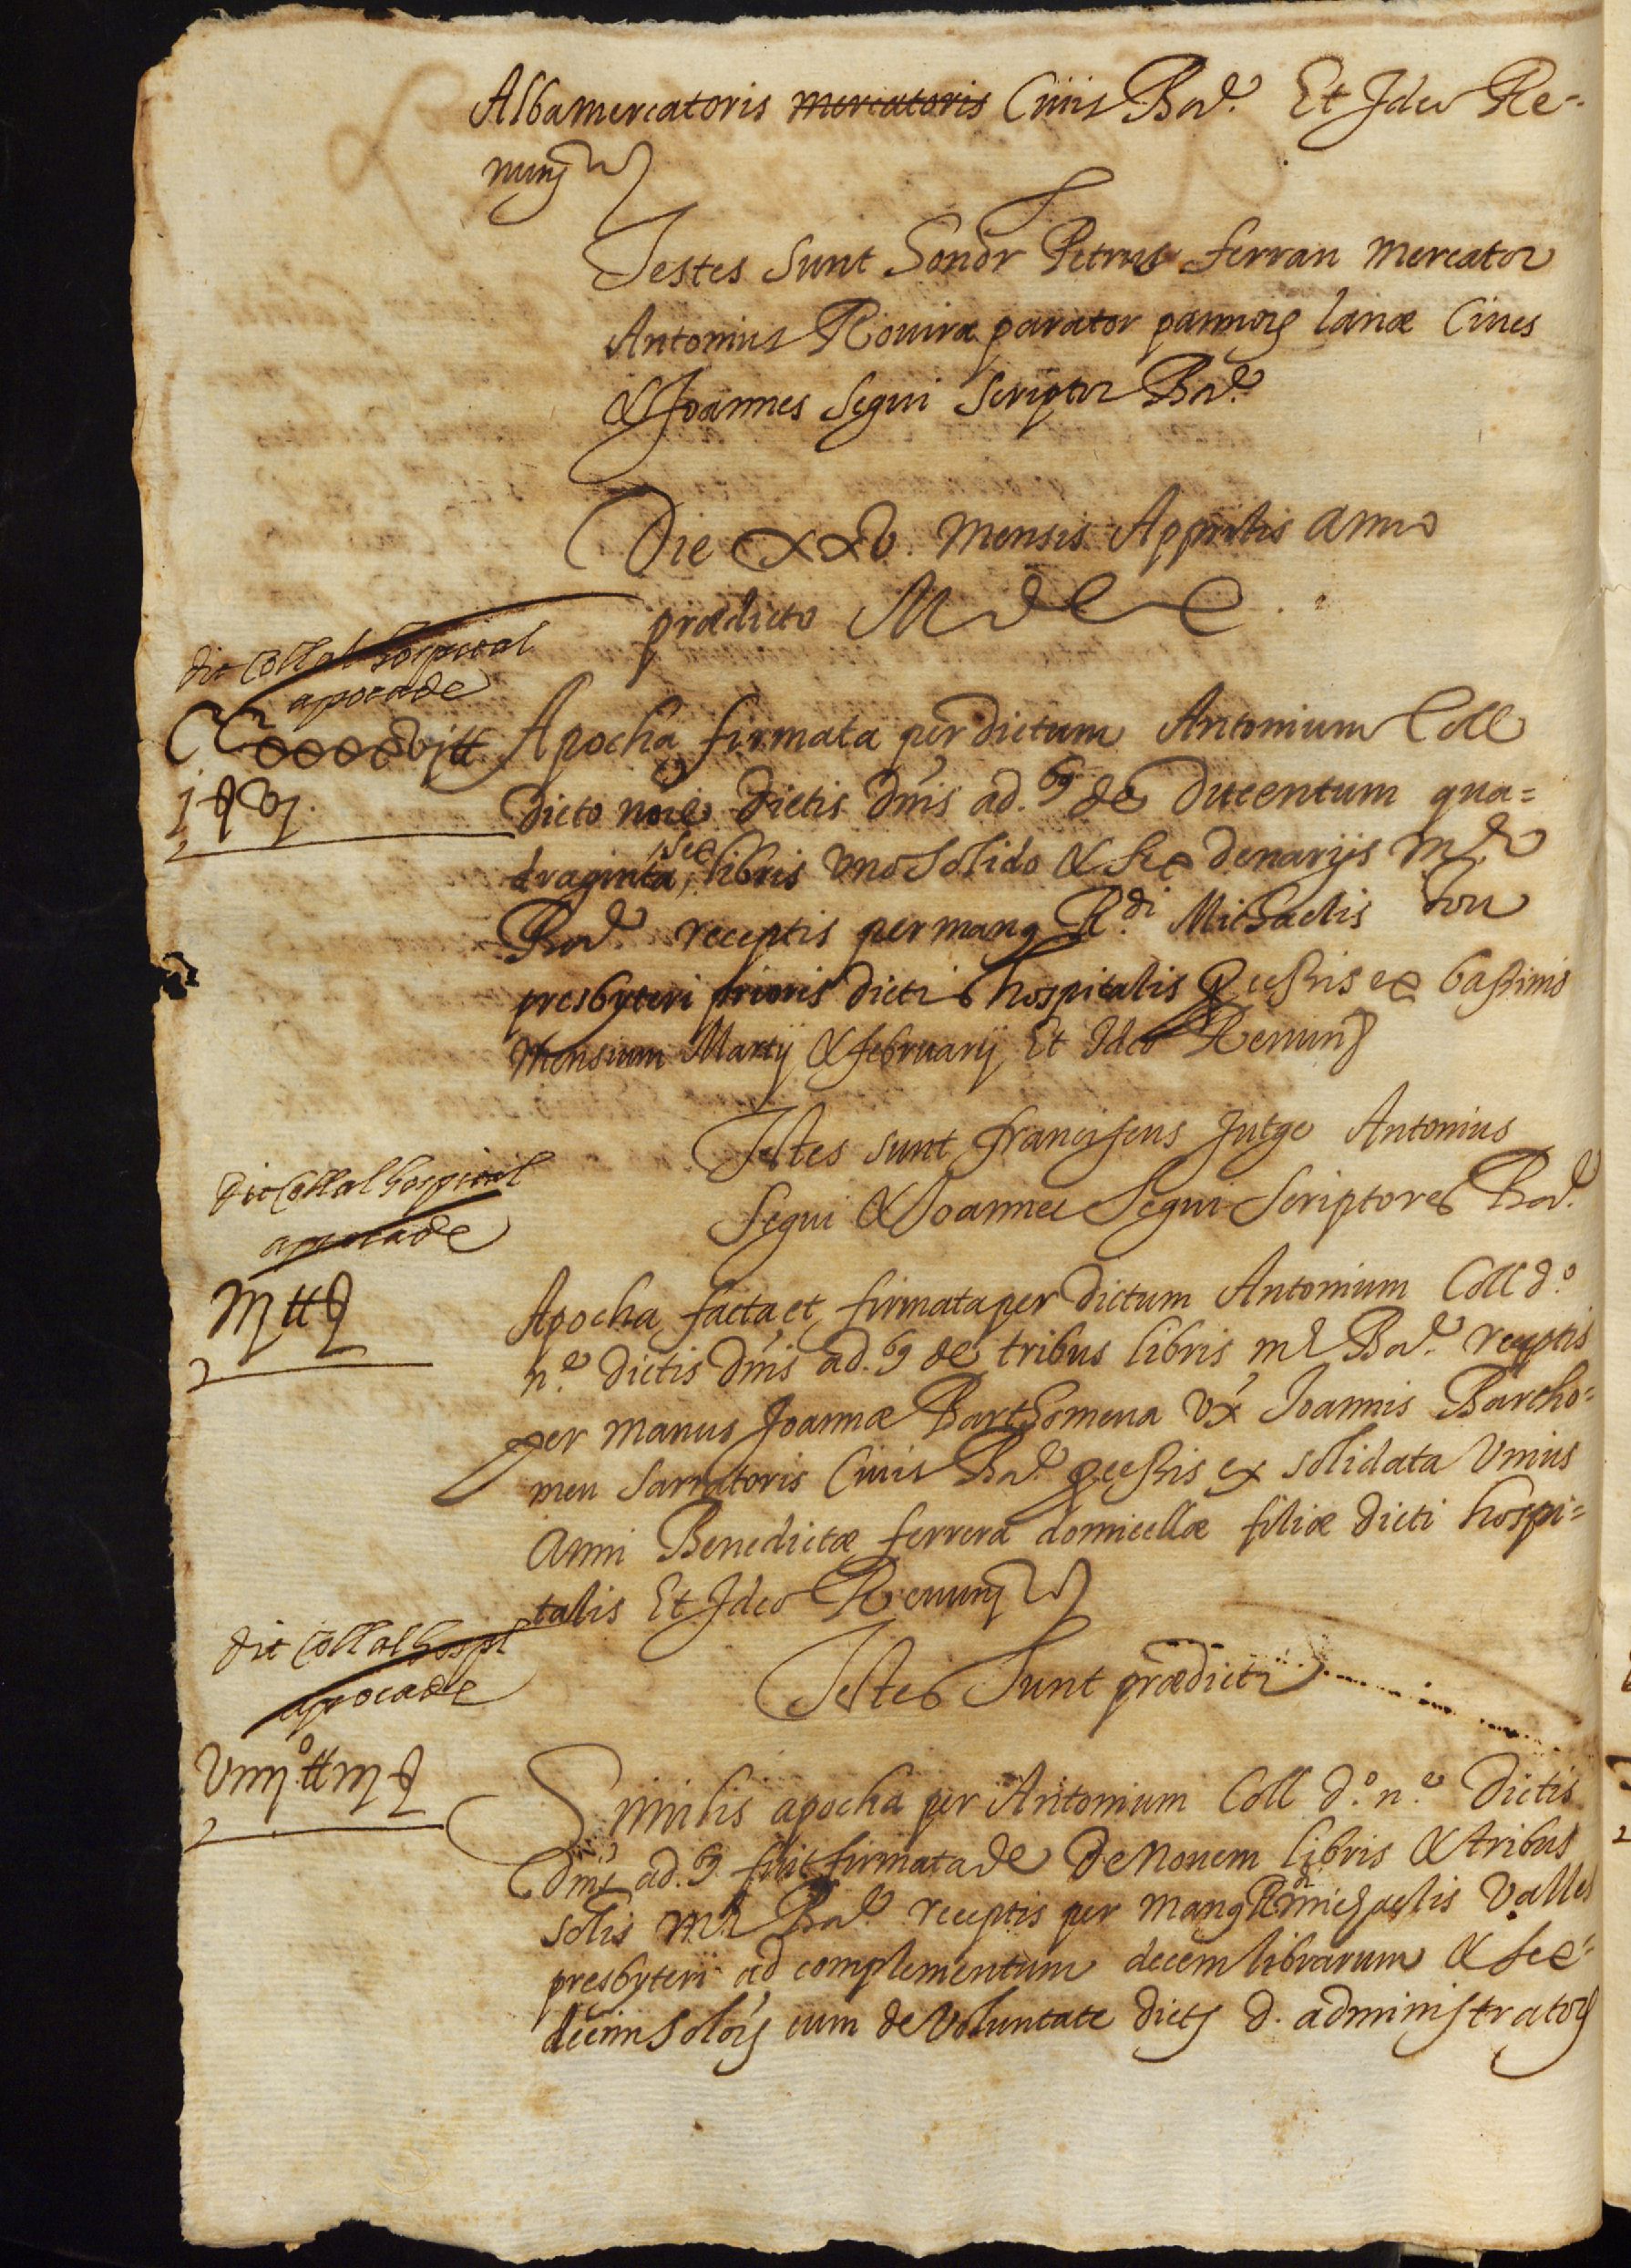 Alba mercatoris mercatoris Civis Bar.e Et Ideo Re-
nunc
Testes sunt honor Petrus ferran mercator
Antonius Rovira parator pannor lanæ Cives
& Joannes Segui scriptor Bar.e
Die xxv. mensis Apprilis anno
prædicto MDC
dit Coll al hospital
apoca de
CCxxxxvi tt
j s vj.
Apocha firmata per dictum Antonium Coll
dicto noie dictis dnis ad. de ducentum qua=
draginta sex libris uno solido & sex denarijs m.e
Bar.e receptis per manus R.di Michaelis Bou
presbyteri prioris dicti hospitalis processis ex bassinis
mensium Martij & februarij Et Ideo Renunc
Testes sunt franciscus Jutge Antonius
Segui & Joannes Segui scriptores Bar.e
dit Coll al hospital
apoca de
iij tt s
Apocha facta et firmata per dictum Antonium Coll d.o
n.e dictis dnis ad. de tribus libris m.e Bar.e receptis
per manus Joannæ Barthomeua ux Joannis Bartho=
meu sarratoris Civis Bar.e processis ex solidata unius
anni Benedictæ ferrera domicellæ filiæ dicti hospi=
talis Et Ideo Renunc
Testes sunt prædicti
dit Coll al hospl
apoca de
viiij.o tt iij s
Similis apocha per Antonium Coll d.o n.e dictis
dnis ad. fuit firmata de de novem libris & tribus
solis m.e Bar.e receptis per manus R.di michaelis Valles
presbyteri ad complementum decem librarum & sex=
decim solor cum de voluntate dictor d. administrator